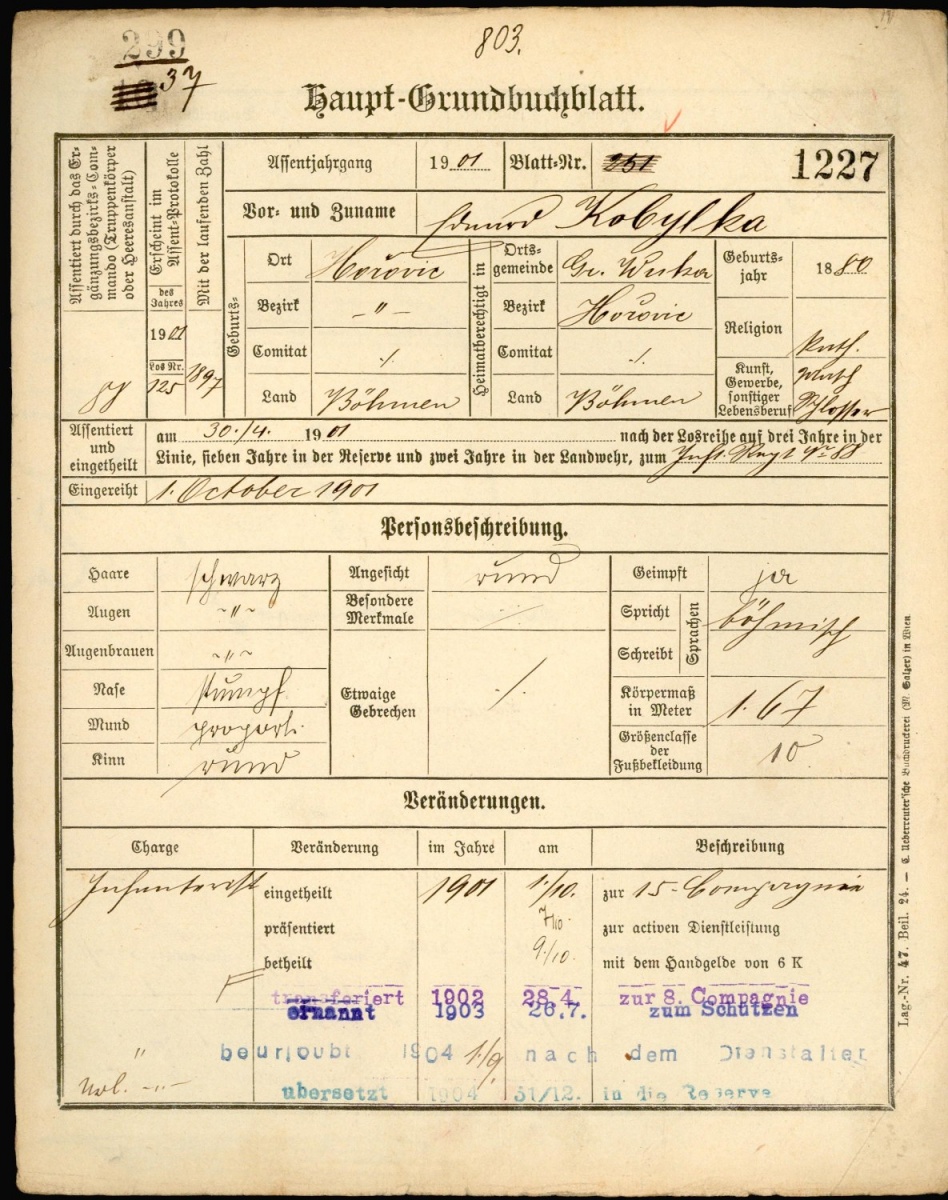 299
803.
37
Haupt-Grundbuchblatt.
Assentiert durch das Ergänzungsbezirks-Commando (Truppenkörper oder Heeresanstalt)
88
Erscheint im Assent-Protokolle
des Jahres
1901
Los Nr.
125
Mit der laufenden Zahl
1897
Assentjahrgang 1901 Blatt-Nr. 251 1227
Vor- und Zuname Eduard Kobylka
Geburts-
Ort Hořovic
Bezirk -"-
Comitat ./.
Land Böhmen
Heimatberechtigt in
Ortsgemeinde Gr.
Bezirk Hořovic
Comitat ./.
Land Böhmen
Geburtsjahr 1880
Religion kath.
Kunst, Gewerbe, sonstiger Lebensberuf Schlosser
Assentiert und eingetheilt
am 30./4. 1901 nach der Losreihe auf drei Jahre in der
Linie, sieben Jahre in der Reserve und zwei Jahre in der Landwehr, zum Inft. Regt No 88
Eingereiht 1. October 1901
Personsbeschreibung.
Haare schwarz
Augen ~"~
Augenbrauen ~"~
Nase stumpf
Mund proport.
Kinn rund
Angesicht rund
Besondere Merkmale ./.
Etwaige Gebrechen ./.
Geimpft ja
Spricht
Schreibt
Sprachen
böhmisch
Körpermaß in Meter 1.67
Größenclasse der Fußbekleidung 10
Veränderungen.
Charge Veränderung im Jahre am Beschreibung
Infanterist eingetheilt 1901 1./10. zur 15. Compagnie
präsentiert 7/10. zur activen Dienstleistung
betheilt 9./10. mit dem Handgelde von 6 K
transferiert 1902 28.4. zur 8. Compagnie
ernannt 1903 26.7. zum Schützen
" beurloubt 1904 1./9 nach dem Dienstalter
-"- übersetzt 1904 31/12. in die Reserve
Lag.-Nr. 47. Beil. 24. — C. Ueberreuter'sche Buchdruckerei (M. Salzer) in Wien